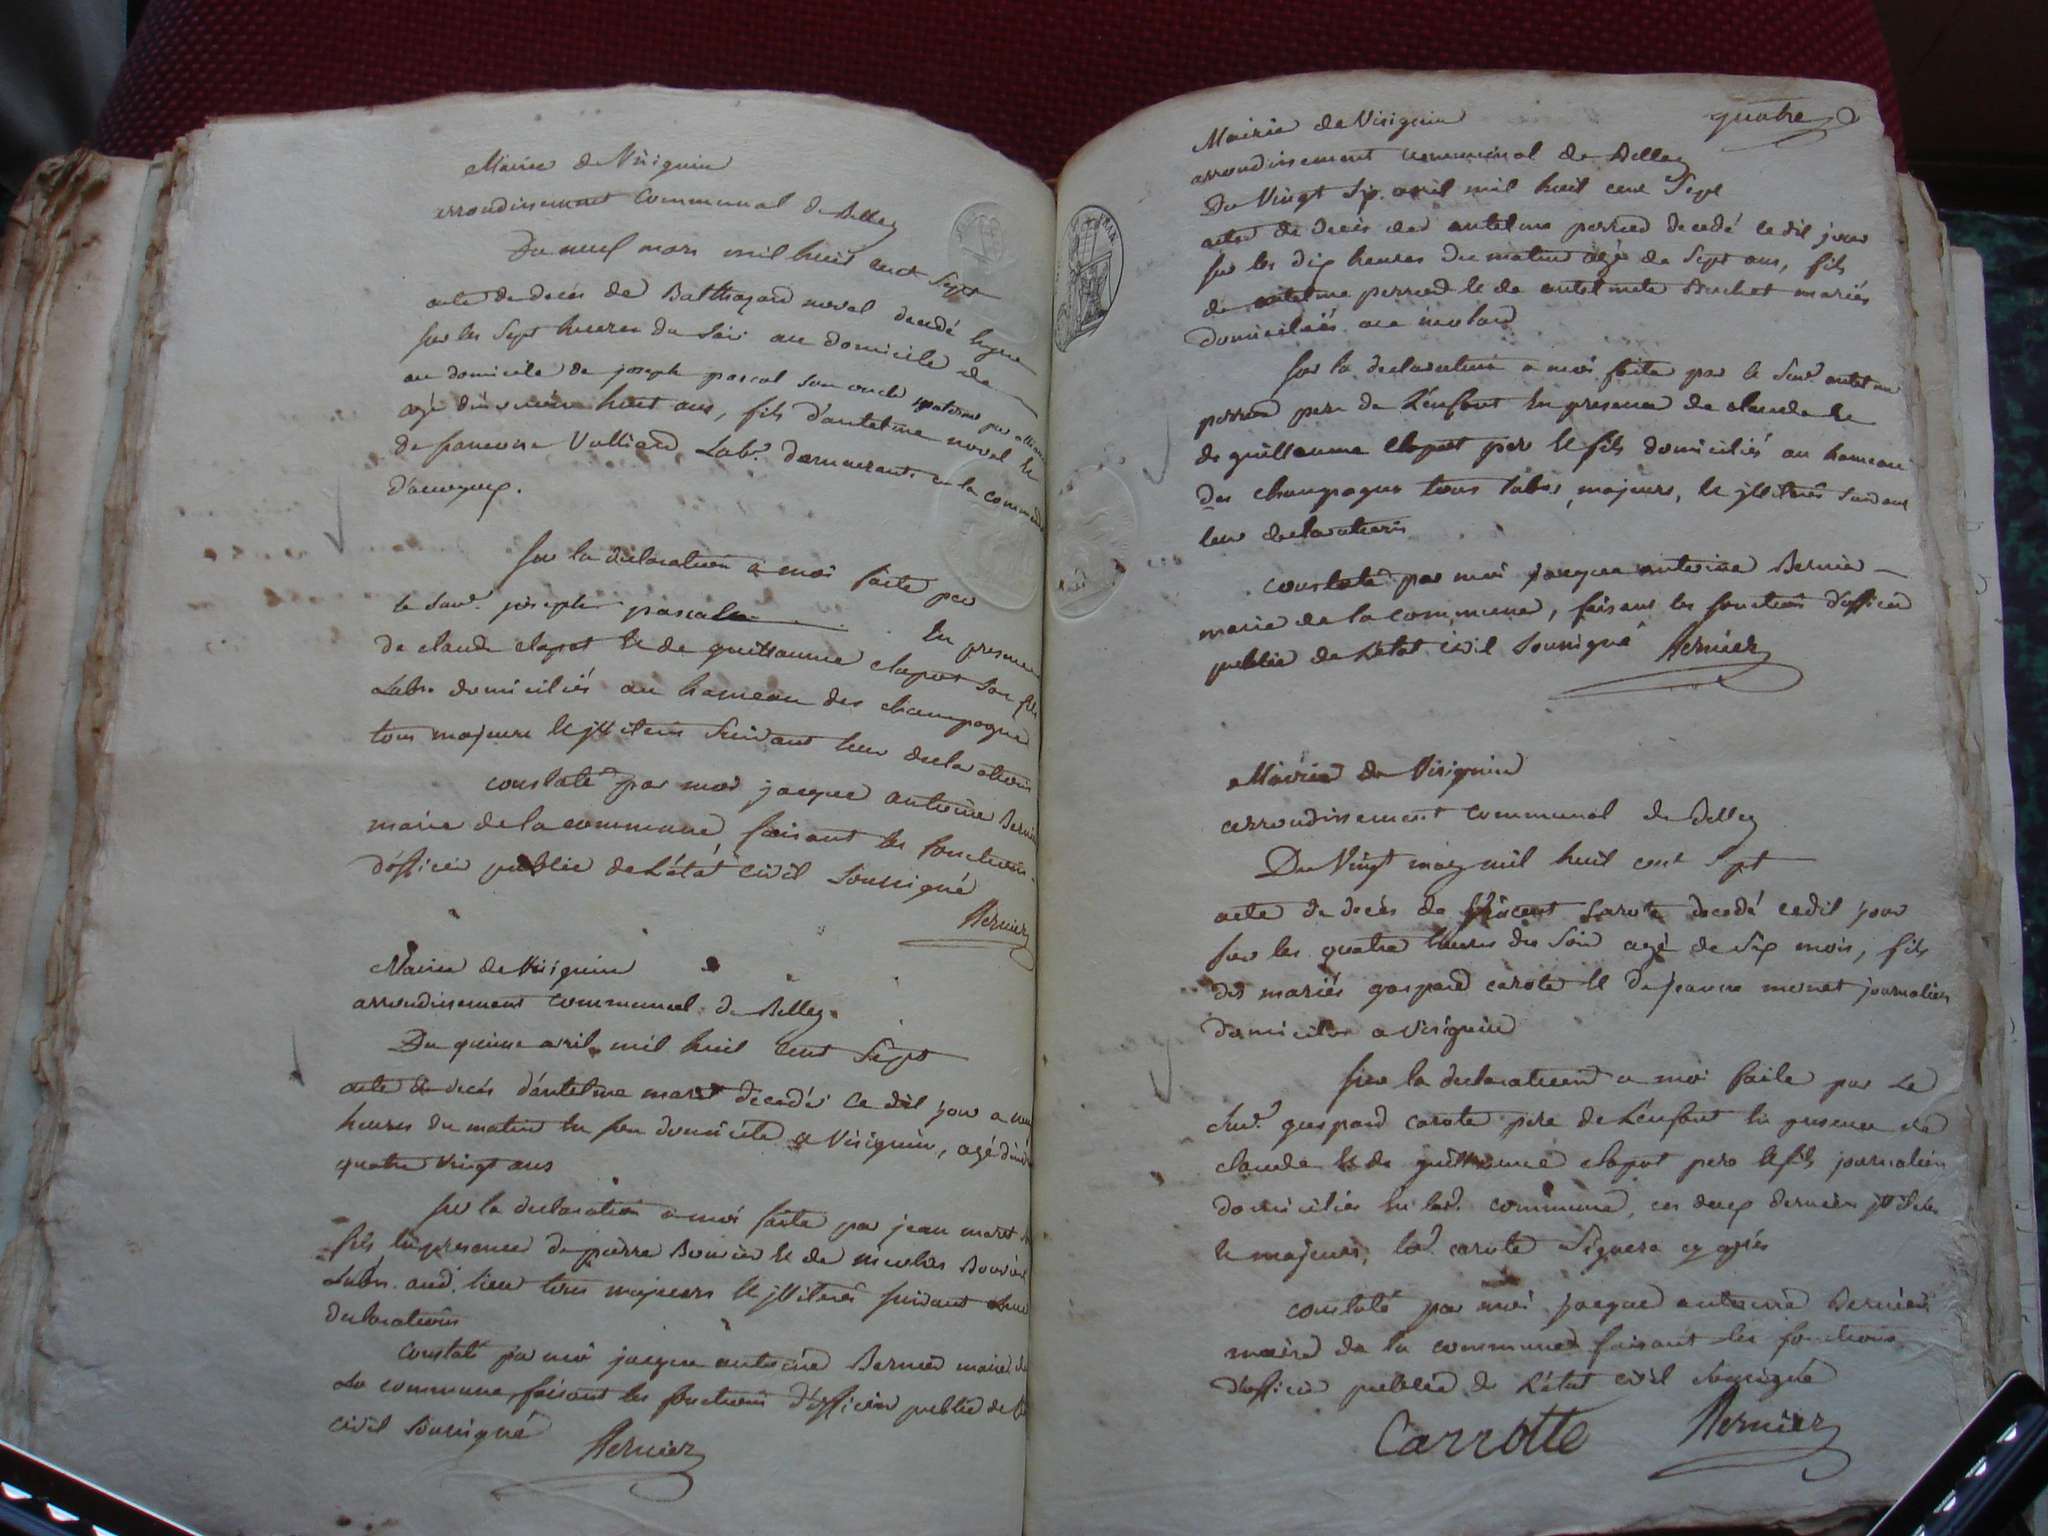 Mairie de Virignin
arrondissement Communal de Belley
Du neuf mars mil huit cent Sept
acte de decés de Balthazard morel decedé
sur les Sept heures du Soir au domicile de
au domicile de joseph pascal Son oncle paterne par alliance
agé d'environ huit ans, fils d'antelme morel &
de francoise Vulliard Labr. demeurant en la commune
Sur la declaration a moi faite par
le Surd. joseph pascal En presence
de claude clapot & de guillaume clapot Son fils
Labrs domiciliés au hameau des champagne
tous majeurs & jlliterés Suivant leur declarations
constaté par moi jacque antoine Bernier
maire de la commune, faisant les fonctions
d'officier public de L'état civil Soussigné
Bernier
Mairie de Virignin
arrondissement communal de Belley
Du quinze avril mil huit cent Sept
acte de decés d'antelme maret decedé ce dit jour a
heures du matin En son domicile a Virignin, agé
quatre vingt ans
Sur la declaration a moi faite par jean maret
fils En presence de pierre Bouvier & de nicolas Bouvier
Labrs. aud. lieu tous majeurs & jlliterés suivant leur
declarations
Constaté par moi jacque antoine Bernier maire de
La commune, faisant les fonctions d'officier public de
civil Soussigné Bernier
quatre
Mairie de Virignin
arrondissement communal de Belley
Du Vingt Six avril mil huit cent Sept
acte de decés de antelme perred decedé ledit jour
sur les dix heures du matin agé de Sept ans, fils
de antelme perred & de antelmete Bachet mariés
domiciliés au molard
Sur la declaration a moi faite par le Surd. antelme
perred pere de L'enfant En presence de claude &
de guillaume Clapot pere & fils domiciliés au hameau
des champagne tous labrs, majeurs, & jlliterés Suivant
leur declarations
constaté par moi jacque antoine Bernier
maire de la commune, faisant les fonctions d'officier
public de L'état civil Soussigné Bernier
Mairie de Virignin
arrondissement communal de Belley
Du Vingt may mil huit cent sept
acte de decés de Vincent Carote decedé cedit jour
sur les quatre heures du Soir agé de Six mois, fils
des mariés gaspard carote & de jeanne monet journalier
domiciliés a Virignin
Sur la declaration a moi faite par Le
Surd. gaspard carote pere de L'enfant En presence de
claude & de guillaume clapot pere & fils journalier
domiciliés En lad. commune, ces deux dernier jlliterés
& majeurs, led. carote Signera cy aprés
constaté par moi jacque antoine Bernier
maire de la commune faisant les fonctions
d'officier public de L'état civil Soussigné
Carrotte Bernier